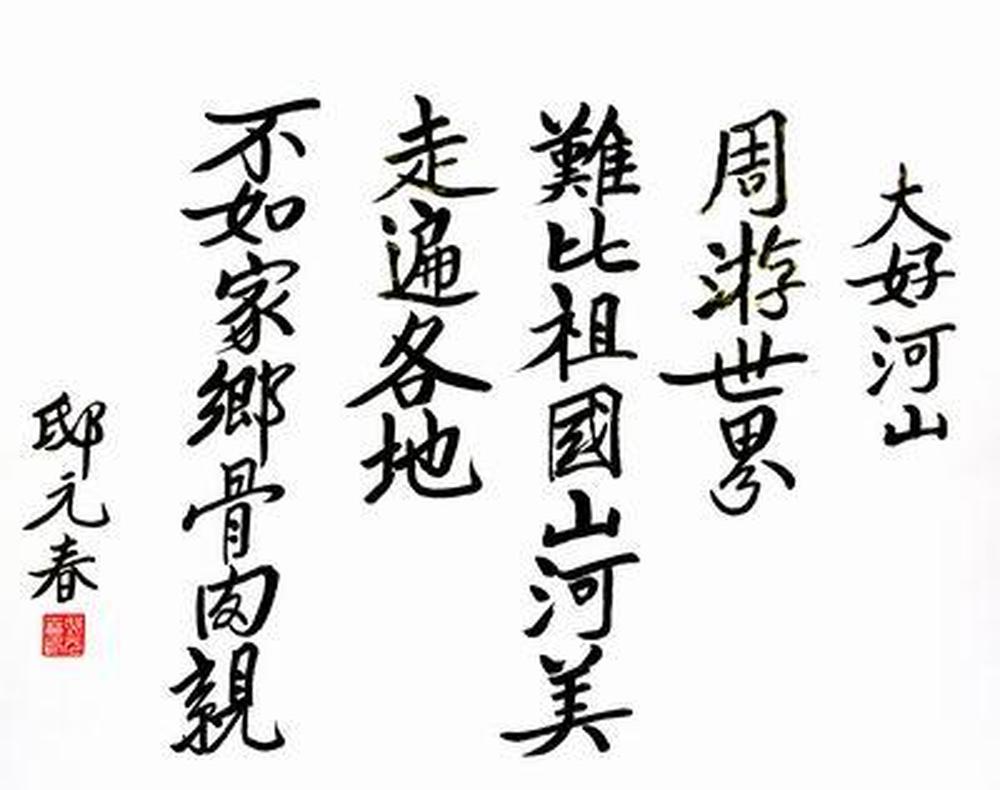 大好河山
周游世界
難比祖國山河美
走遍各地
不如家鄉骨肉親
邸元春